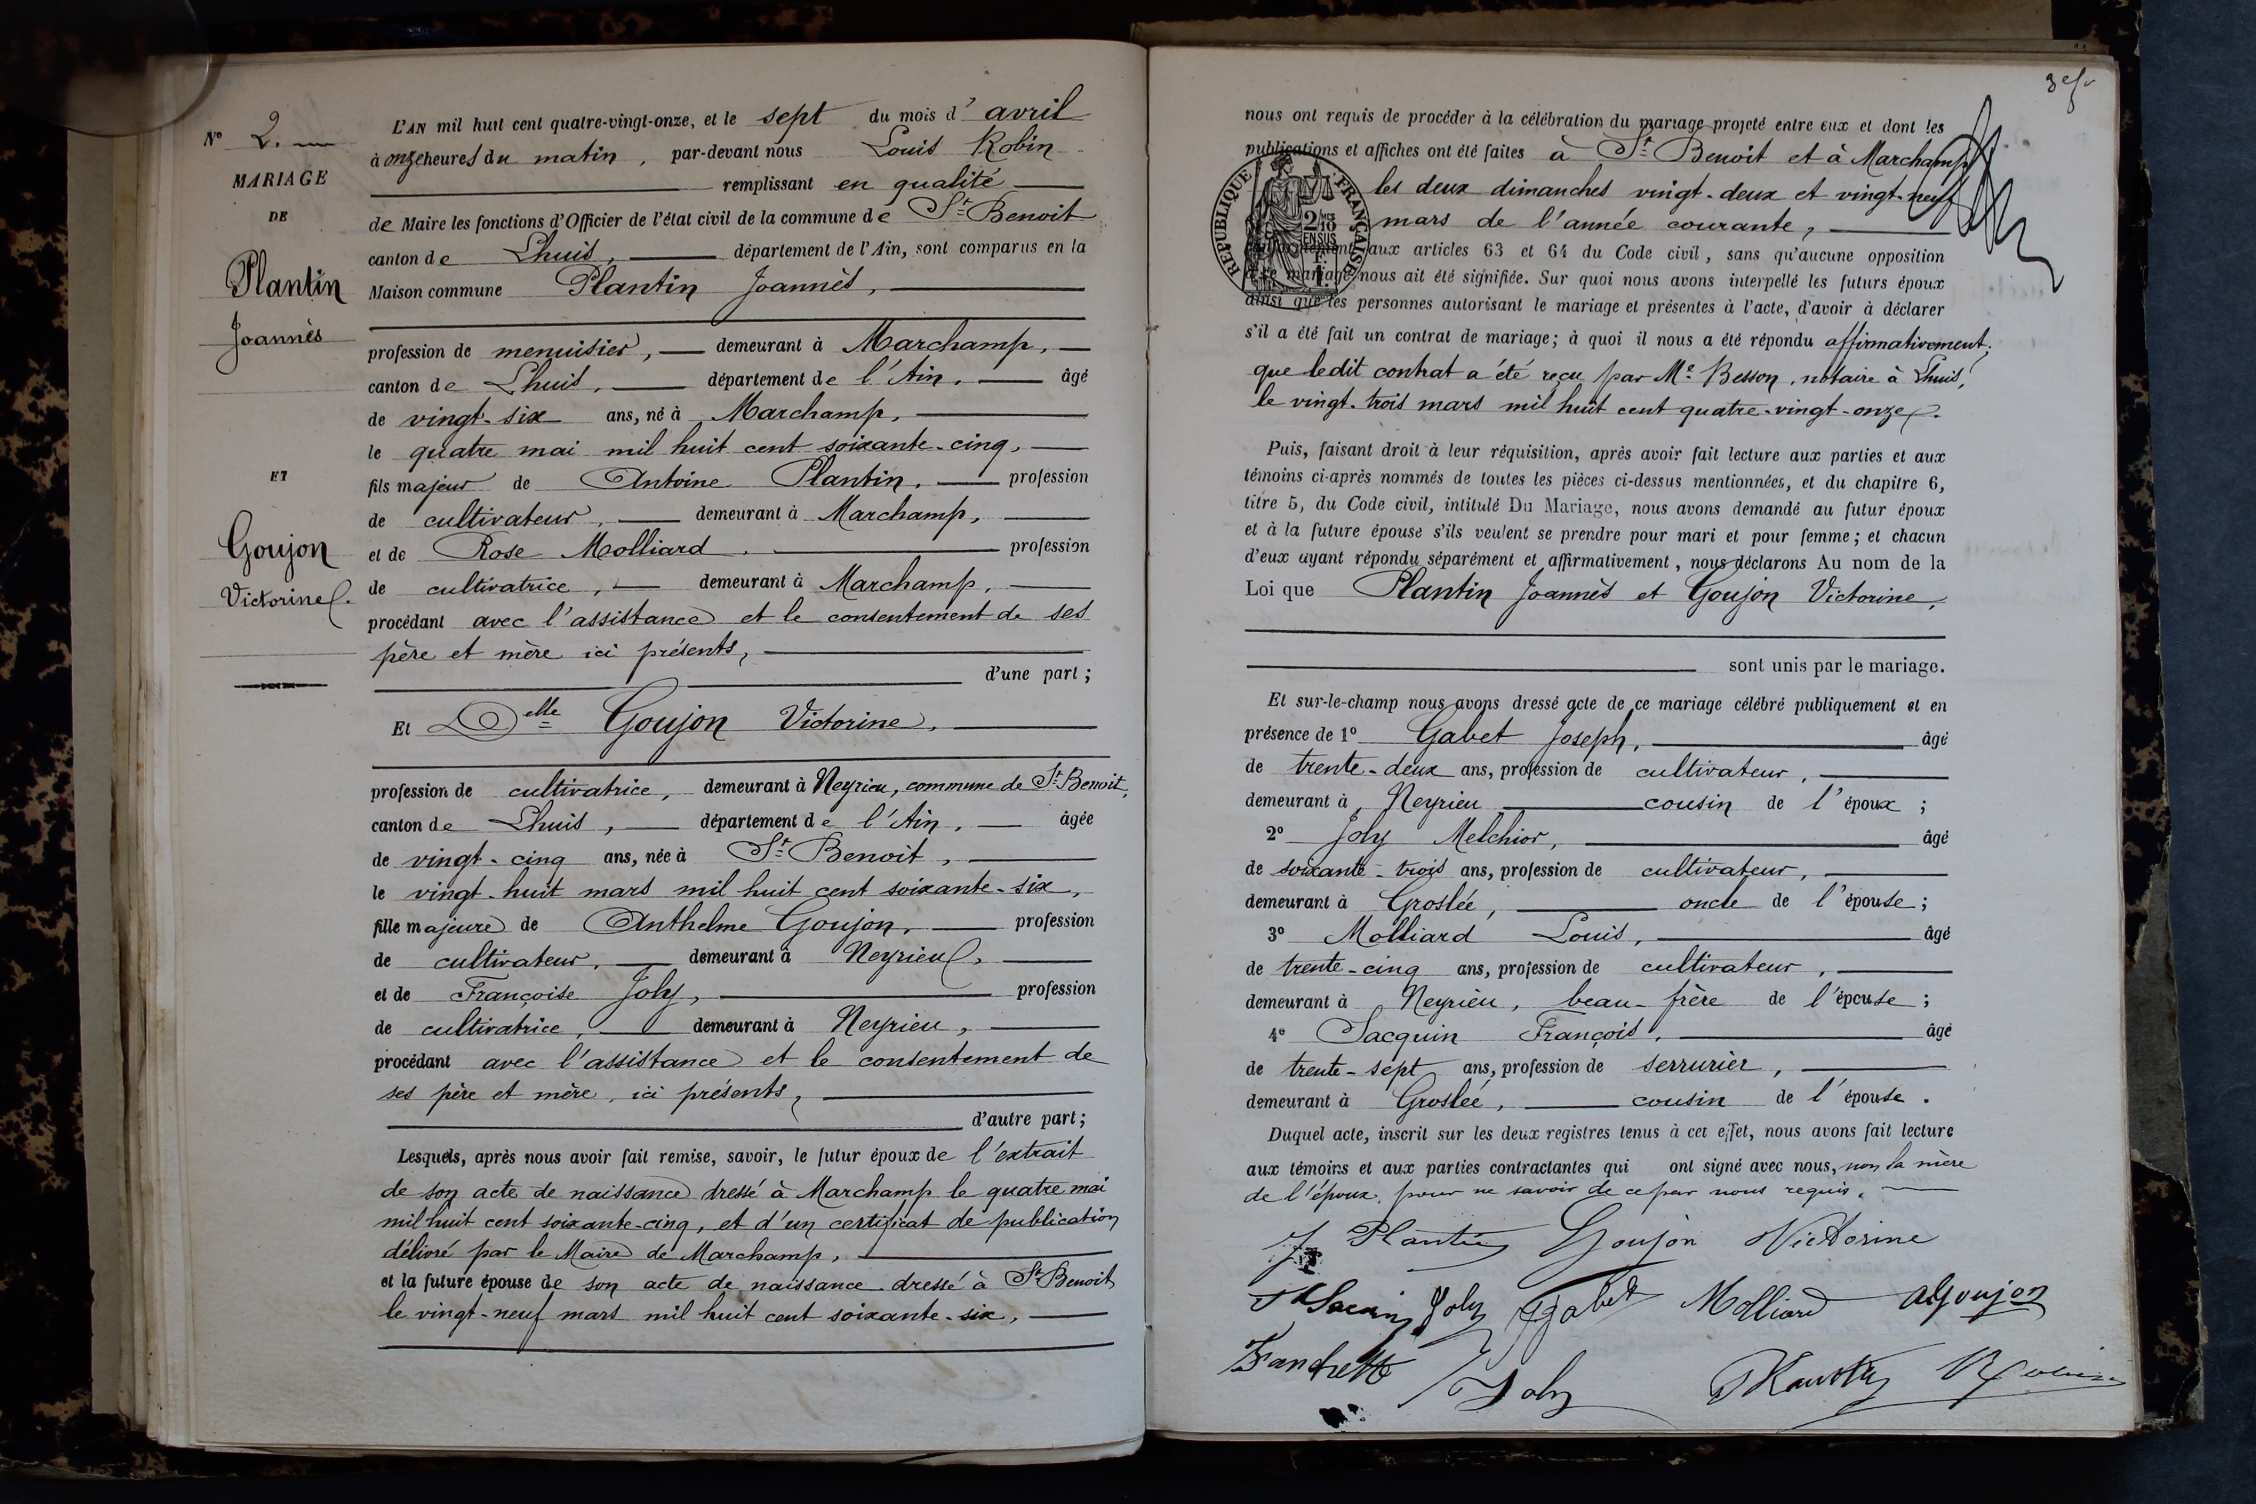 Nº 2.
MARIAGE
DE
Plantin
Joannès
ET
Goujon
Victorine.
L'AN mil huit cent quatre-vingt-onze, et le sept du mois d' avril
à onze heures du matin, par-devant nous Louis Robin
remplissant en qualité
de Maire les fonctions d'Officier de l'état civil de la commune de St Benoit
canton de Lhuis, département de l'Ain, sont comparus en la
Maison commune Plantin Joannès,
profession de menuisier, demeurant à Marchamp,
canton de Lhuis, département de l'Ain, âgé
de vingt-six ans, né à Marchamp,
le quatre mai mil huit cent soixante-cinq,
fils majeur de Antoine Plantin, profession
de cultivateur, demeurant à Marchamp,
et de Rose Molliard, profession
de cultivatrice, demeurant à Marchamp,
procédant avec l'assistance et le consentement de ses
père et mère ici présents,
d'une part;
Et Delle Goujon Victorine,
profession de cultivatrice, demeurant à Neyrieu, commune de St Benoit,
canton de Lhuis, département de l'Ain, âgée
de vingt-cinq ans, née à St Benoit,
le vingt-huit mars mil huit cent soixante-six,
fille majeure de Anthelme Goujon, profession
de cultivateur, demeurant à Neyrieu,
et de Françoise Joly, profession
de cultivatrice, demeurant à Neyrieu,
procédant avec l'assistance et le consentement de
ses père et mère, ici présents,
d'autre part;
Lesquels, après nous avoir fait remise, savoir, le futur époux de l'extrait
de son acte de naissance dressé à Marchamp le quatre mai
mil huit cent soixante-cinq, et d'un certificat de publication
délivré par le Maire de Marchamp,
et la future épouse de son acte de naissance dressé à St Benoit
le vingt-neuf mars mil huit cent soixante-six,
nous ont requis de procéder à la célébration du mariage projeté entre eux et dont les
publications et affiches ont été faites à St Benoit et à Marchamp
les deux dimanches vingt-deux et vingt-neuf
mars de l'année courante,
RÉPUBLIQUE FRANÇAISE
2/10 EN SUS
conformément aux articles 63 et 64 du Code civil, sans qu'aucune opposition
à ce mariage nous ait été signifiée. Sur quoi nous avons interpellé les futurs époux
ainsi que les personnes autorisant le mariage et présentes à l'acte, d'avoir à déclarer
s'il a été fait un contrat de mariage; à quoi il nous a été répondu affirmativement;
que ledit contrat a été reçu par Me Besson, notaire à Lhuis,
le vingt-trois mars mil huit cent quatre-vingt-onze.
Puis, faisant droit à leur réquisition, après avoir fait lecture aux parties et aux
témoins ci-après nommés de toutes les pièces ci-dessus mentionnées, et du chapitre 6,
titre 5, du Code civil, intitulé Du Mariage, nous avons demandé au futur époux
et à la future épouse s'ils veulent se prendre pour mari et pour femme; et chacun
d'eux ayant répondu séparément et affirmativement, nous déclarons Au nom de la
Loi que Plantin Joannès et Goujon Victorine,
sont unis par le mariage.
Et sur-le-champ nous avons dressé acte de ce mariage célébré publiquement et en
présence de 1º Gabet Joseph, âgé
de trente-deux ans, profession de cultivateur,
demeurant à Neyrieu cousin de l'époux;
2º Joly Melchior, âgé
de soixante-trois ans, profession de cultivateur,
demeurant à Groslée, oncle de l'épouse;
3º Molliard Louis, âgé
de trente-cinq ans, profession de cultivateur,
demeurant à Neyrieu, beau-frère de l'épouse;
4º Sacquin François, âgé
de trente-sept ans, profession de serrurier,
demeurant à Groslée, cousin de l'épouse.
Duquel acte, inscrit sur les deux registres tenus à cet effet, nous avons fait lecture
aux témoins et aux parties contractantes qui ont signé avec nous, non la mère
de l'époux, pour ne savoir de ce par nous requis.
J Plantin Goujon Victorine
Joly Gabet Molliard AGoujon
Joly